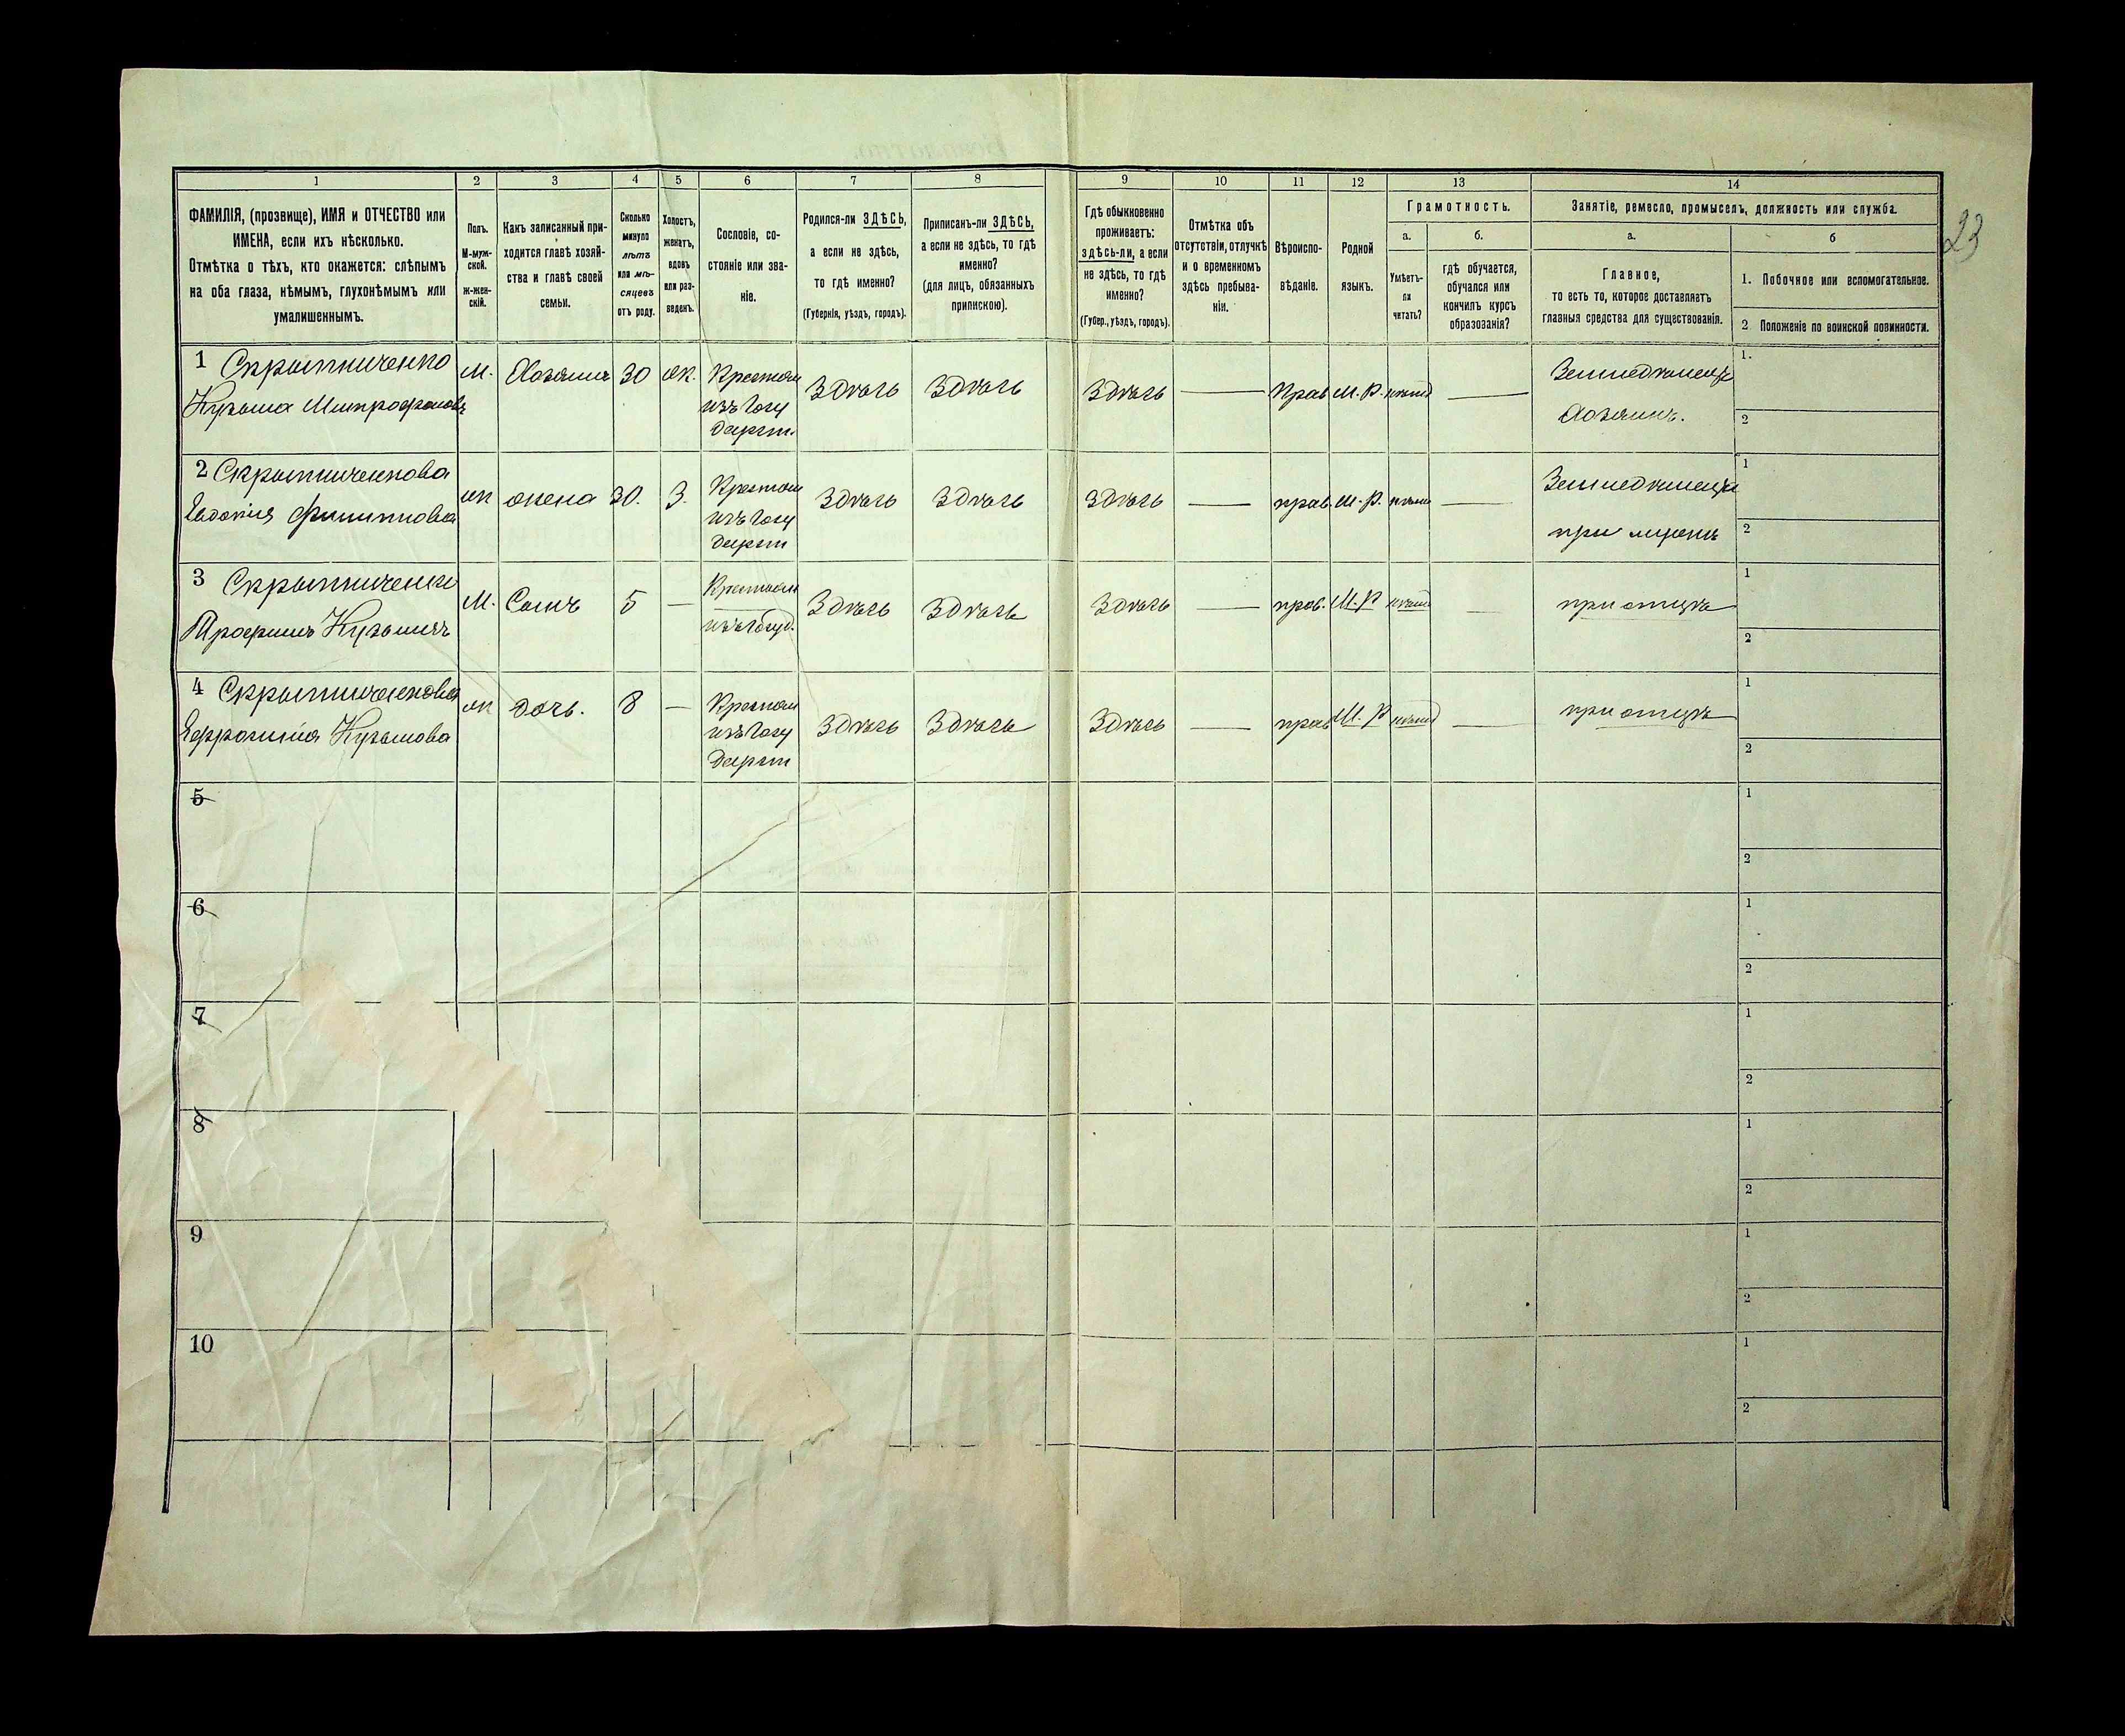 23
1 2 3 4 5 6 7 8 9 10 11 12 13 14
ФАМИЛІЯ, (прозвище), ИМЯ и ОТЧЕСТВО или
ИМЕНА, если ихъ нѣсколько.
Отмѣтка о тѣхъ, кто окажется: слѣпымъ
на оба глаза, нѣмымъ, глухонѣмымъ или
умалишеннымъ.
Полъ.
М-муж-
ской.
ж-жен-
скій.
Какъ записанный при-
ходится главѣ хозяй-
ства и главѣ своей
семьи.
Сколько
минуло
лѣтъ
или мѣ-
сяцевъ
отъ роду.
Холостъ,
женатъ,
вдовъ
или раз-
веденъ.
Сословіе, со-
стояніе или зва-
ніе.
Родился-ли ЗДѢСЬ,
а если не здѣсь,
то гдѣ именно?
(Губернія, уѣздъ, городъ).
Приписанъ-ли ЗДѢСЬ,
а если не здѣсь, то гдѣ
именно?
(для лицъ, обязанныхъ
припискою).
Гдѣ обыкновенно
проживаетъ:
здѣсь-ли, а если
не здѣсь, то гдѣ
именно?
(Губер., уѣздъ, городъ).
Отмѣтка объ
отсутствіи, отлучкѣ
и о временномъ
здѣсь пребыва-
ніи.
Вѣроиспо-
вѣданіе.
Родной
языкъ.
Грамотность.
а.
Умѣетъ-
ли
читать?
б.
гдѣ обучается,
обучался или
кончилъ курсъ
образованія?
Занятіе, ремесло, промыселъ, должность или служба.
а.
Главное,
то есть то, которое доставляетъ
главныя средства для существованія.
б
1. Побочное или вспомогательное.
2 Положеніе по воинской повинности.
1 Скрыпниченко
Кузьма Митрофановъ
М.
Хозяинъ
30
ж.
Крестьян
изъ Госу
дарст.
Здѣсь
Здѣсь
Здѣсь
Прав
М. Р.
Земледѣлецъ
Хозяинъ.
1.
2
2 Скрыпниченкова
Евдокія Филиппова
ж
жена
30.
З.
Крестьян
изъ Госу
дарст
Здѣсь
Здѣсь
Здѣсь
прав.
М. Р.
при мужѣ
1
2
3 Скрыпниченко
Трофимъ Кузьминъ
М.
Сынъ
5
Крестьян
изъ Госуд.
Здѣсь
Здѣсь
Здѣсь
прав.
М. Р
при отцѣ
1
2
4 Скрыпниченкова
Ефросинія Кузьмова
ж
дочь.
8
Крестьян
изъ Госу
дарст
Здѣсь
Здѣсь
Здѣсь
прав
М. Р
при отцѣ
1
2
5
1
2
6
1
2
7
1
2
8
1
2
9
1
2
10
1
2